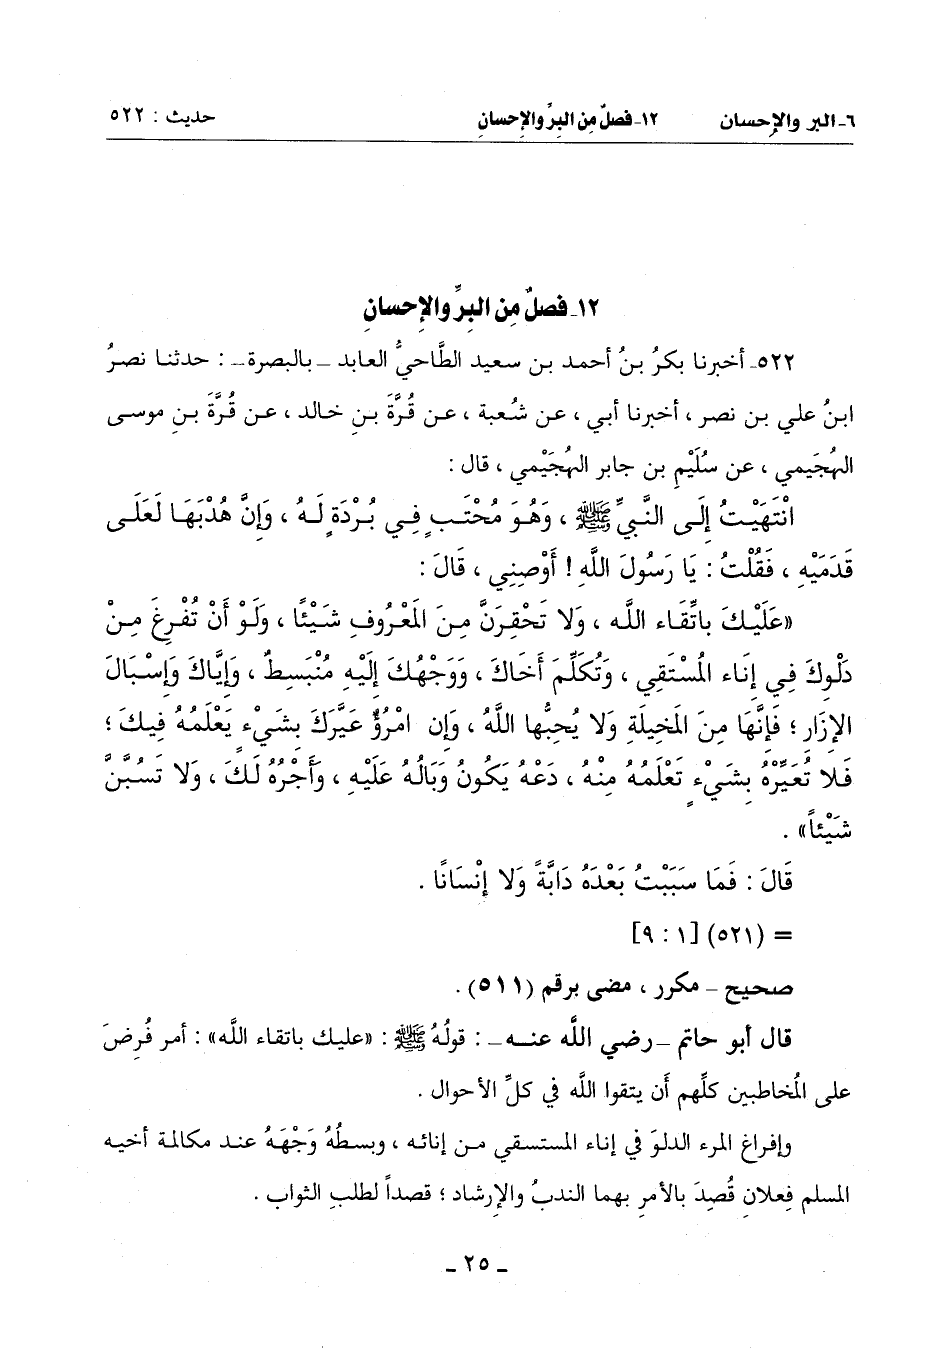 ٦ـ البر والإحسان ١٢ـ فصلٌ مِن البِرِّ والإحسانِ حديث : ٥٢٢
١٢ـ فصلٌ مِن البِرِّ والإحسانِ
٥٢٢ـ أخبرنا بكرُ بنُ أحمد بن سعيد الطَّاحيُّ العابد ـ بالبصرة ـ : حدثنا نصرُ
ابنُ علي بن نصر ، أخبرنا أبي ، عن شُعبة ، عن قُرَّةَ بنِ خالد ، عن قُرَّةَ بنِ موسى
الهُجَيمي ، عن سُلَيْمِ بن جابر الهُجَيْمي ، قال :
انْتَهَيْتُ إِلَى النَّبِيِّ ﷺ ، وَهُوَ مُحْتَبٍ فِي بُرْدَةٍ لَهُ ، وَإِنَّ هُدْبَهَا لَعَلَى
قَدَمَيْهِ ، فَقُلْتُ : يَا رَسُولَ اللَّهِ ! أَوْصِنِي ، قَالَ :
«عَلَيْكَ باتِّقَاء اللَّه ، وَلا تَحْقِرَنَّ مِنَ المَعْرُوفِ شَيْئًا ، وَلَوْ أَنْ تُفْرِغَ مِنْ
دَلْوِكَ فِي إِنَاء المُسْتَقِي ، وَتُكَلِّمَ أَخَاكَ ، وَوَجْهُكَ إِلَيْهِ مُنْبَسِطٌ ، وَإِيَّاكَ وَإِسْبَالَ
الإزَارِ ؛ فَإِنَّهَا مِنَ المَخِيلَةِ وَلا يُحِبُّها اللَّهُ ، وَإِن امْرُؤٌ عَيَّرَكَ بشَيْءٍ يَعْلَمُهُ فِيكَ ؛
فَلا تُعَيِّرْهُ بِشَيْءٍ تَعْلَمُهُ مِنْهُ ، دَعْهُ يَكُونُ وَبَالُهُ عَلَيْهِ ، وَأَجْرُهُ لَكَ ، وَلا تَسُبَّنَّ
شَيْئاً» .
قَالَ : فَمَا سَبَبْتُ بَعْدَهُ دَابَّةً وَلا إِنْسَانًا .
= (٥٢١) [٩ : ١]
صحيح ـ مكرر ، مضى برقم (٥١١) .
قال أبو حاتم ـ رضي اللَّه عنه ـ : قولُهُ ﷺ : «عليك باتقاء اللَّه» : أمر فُرِضَ
على المُخاطبين كلِّهم أن يتقوا اللَّه في كلِّ الأحوال .
وإفراغ المرء الدلوَ في إناء المستسقي من إنائه ، وبسطُهُ وَجْهَهُ عند مكالمة أخيه
المسلم فِعلانِ قُصِدَ بالأمرِ بهما الندبُ والإرشاد ؛ قصداً لطلبِ الثواب .
ـ ٢٥ ـ